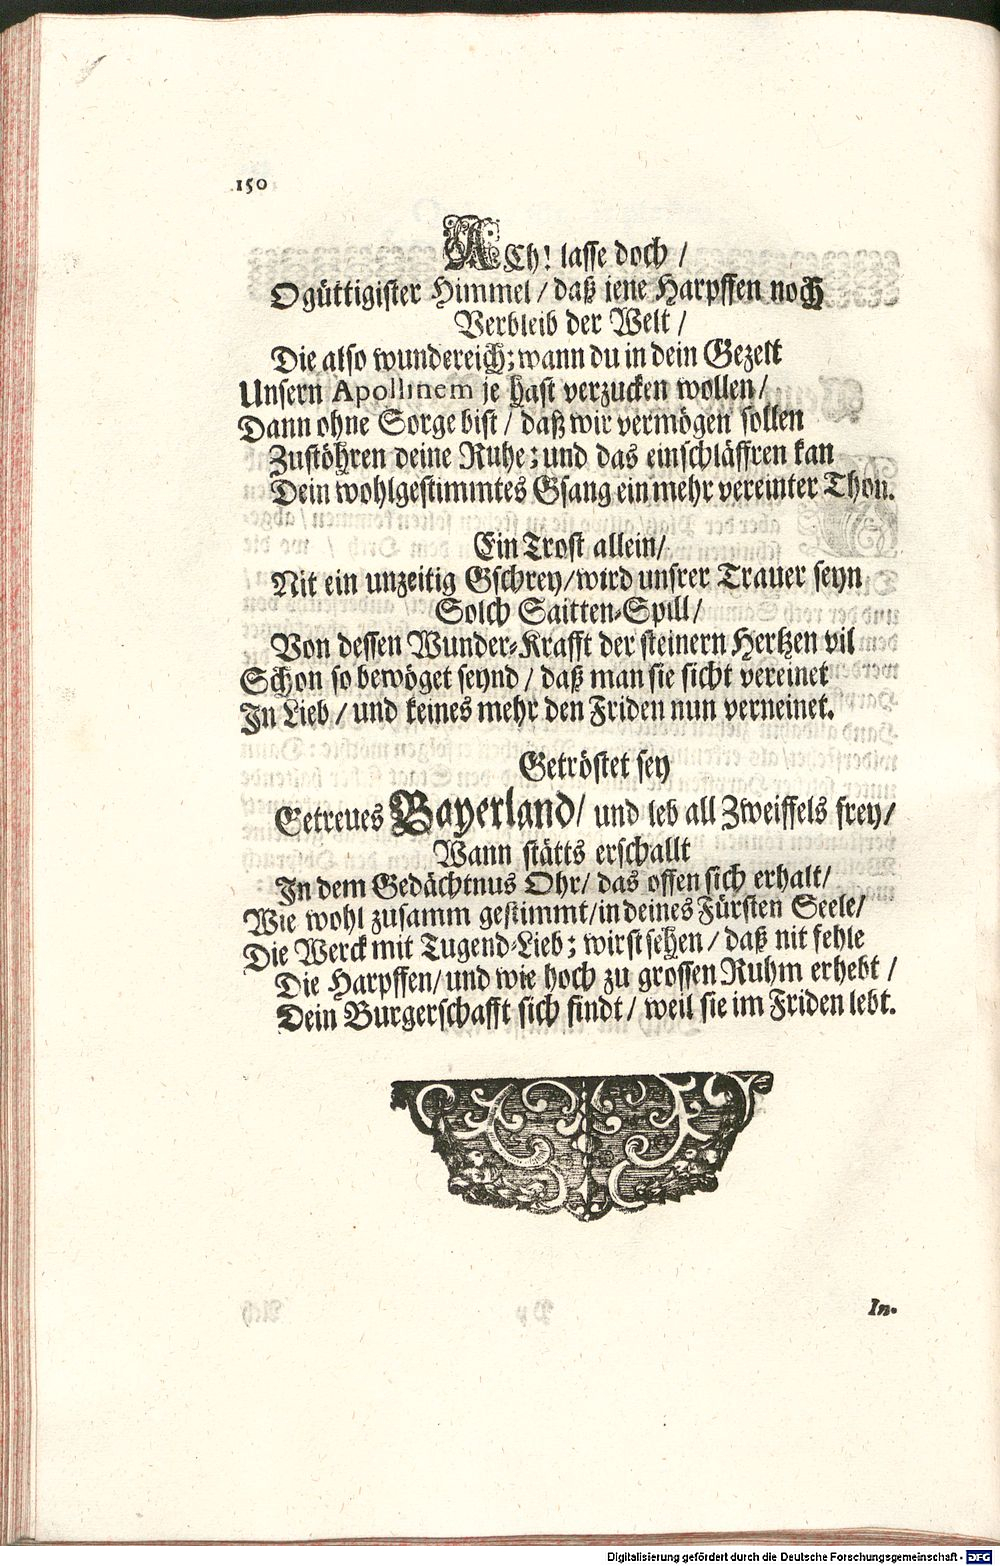 150
ACh! lasse doch /
O güttigister Himmel / daß jene Harpffen noch
Verbleib der Welt /
Die also wundereich; wann du in dein Gezelt
Unsern Apollinem je hast verzucken wollen /
Dann ohne Sorge bist / daß wir vermögen sollen
Zustöhren deine Ruhe; und das einschläffren kan
Dein wohlgestimmtes Gsang ein mehr vereinter Thon.
Ein Trost allein /
Nit ein unzeitig Gschrey / wird unsrer Trauer seyn
Solch Saitten-Spill /
Von dessen Wunder-Krafft der steinern Hertzen vil
Schon so bewöget seynd / daß man sie sicht vereinet
In Lieb / und keines mehr den Friden nun verneinet.
Getröstet sey
Getreues Bayerland / und leb all Zweiffels frey /
Wann stätts erschallt
In dem Gedächtnus Ohr / das offen sich erhalt /
Wie wohl zusamm gestimmt / in deines Fürsten Seele /
Die Werck mit Tugend-Lieb; wirst sehen / daß nit fehle
Die Harpffen / und wie hoch zu grossen Ruhm erhebt /
Dein Burgerschafft sich findt / weil sie im Friden lebt.
In-
Digitalisierung gefördert durch die Deutsche Forschungsgemeinschaft - DFG